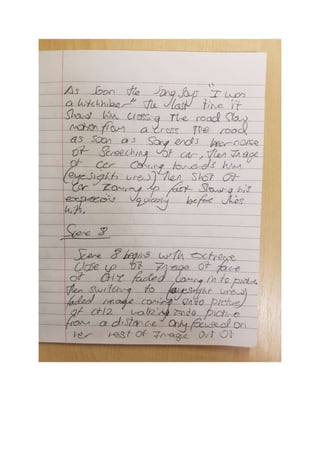 As soon the song says "I was
a hitchhiker" the last time it
shows him crossing the road slow
motion from across the road
as soon as song ends hear noise
of screeching of car, then image
of car coming towards him
(eyesights view) then shot of
car zoming up fast showing his
expression before hes
hit.
Scene 8
Scene 8 begins with extreme
Close up of image of face
of CH2 faded coming in to picture
then switching to (eyesight view)
faded image coming into picture
of CH2 walking into picture
from a distance only focused on
her rest of image out of